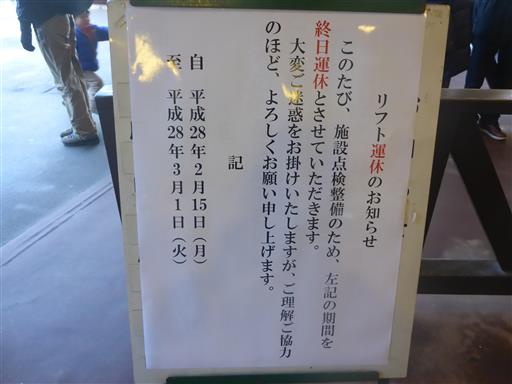 リフト運休のお知らせ
このたび、施設点検整備のため、左記の期間を
終日運休とさせていただきます。
大変ご迷惑をお掛けいたしますが、ご理解ご協力
のほど、よろしくお願い申し上げます。
記
自 平成28年2月15日（月）
至 平成28年3月1日（火）